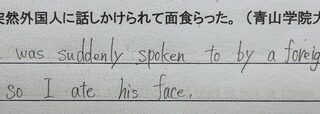 突然外国人に話しかけられて面食らった。(青山学院大
was suddenly spoken to by a foreig
so I ate his face.